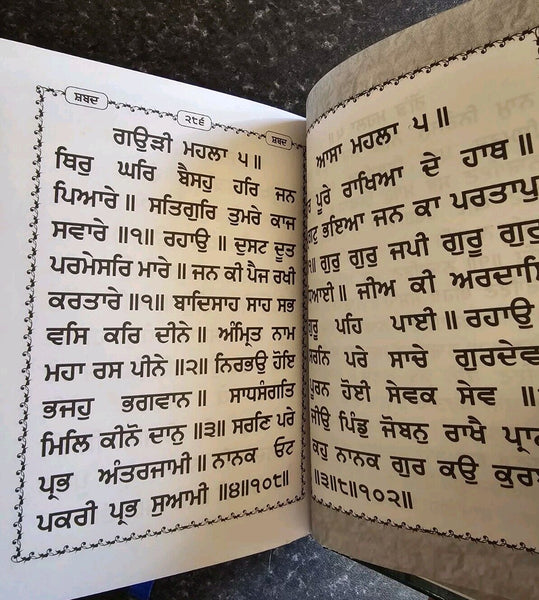 ਸ਼ਬਦ
੨੮੬
ਸ਼ਬਦ
ਗਉੜੀ ਮਹਲਾ ੫॥
ਥਿਰੁ ਘਰਿ ਬੈਸਹੁ ਹਰਿ ਜਨ
ਪਿਆਰੇ॥ ਸਤਿਗੁਰਿ ਤੁਮਰੇ ਕਾਜ
ਸਵਾਰੇ॥੧॥ ਰਹਾਉ॥ ਦੁਸਟ ਦੂਤ
ਪਰਮੇਸਰਿ ਮਾਰੇ॥ ਜਨ ਕੀ ਪੈਜ ਰਖੀ
ਕਰਤਾਰੇ॥੧॥ ਬਾਦਿਸਾਹ ਸਾਹ ਸਭ
ਵਸਿ ਕਰਿ ਦੀਨੇ॥ ਅੰਮ੍ਰਿਤ ਨਾਮ
ਮਹਾ ਰਸ ਪੀਨੇ॥੨॥ ਨਿਰਭਉ ਹੋਇ
ਭਜਹੁ ਭਗਵਾਨ॥ ਸਾਧਸੰਗਤਿ
ਮਿਲਿ ਕੀਨੋ ਦਾਨੁ॥੩॥ ਸਰਣਿ ਪਰੇ
ਪ੍ਰਭ ਅੰਤਰਜਾਮੀ॥ ਨਾਨਕ ਓਟ
ਪਕਰੀ ਪ੍ਰਭ ਸੁਆਮੀ॥੪॥੧੦੮॥
ਆਸਾ ਮਹਲਾ ੫॥
ਪੂਰੇ ਰਾਖਿਆ ਦੇ ਹਾਥ॥
ਭਇਆ ਜਨ ਕਾ ਪਰਤਾਪੁ
ਗੁਰੁ ਗੁਰੁ ਜਪੀ ਗੁਰੂ ਗੁਰੁ
ਜੀਅ ਕੀ ਅਰਦਾਸਿ
ਪਹਿ ਪਾਈ॥ ਰਹਾਉ
ਪਰੇ ਸਾਚੇ ਗੁਰਦੇਵ
ਪੂਰਨ ਹੋਈ ਸੇਵਕ ਸੇਵ॥
ਜੀਉ ਪਿੰਡੁ ਜੋਬਨੁ ਰਾਖੈ
ਕਹੁ ਨਾਨਕ ਗੁਰ ਕਉ
॥੩॥੮॥੧੦੨॥